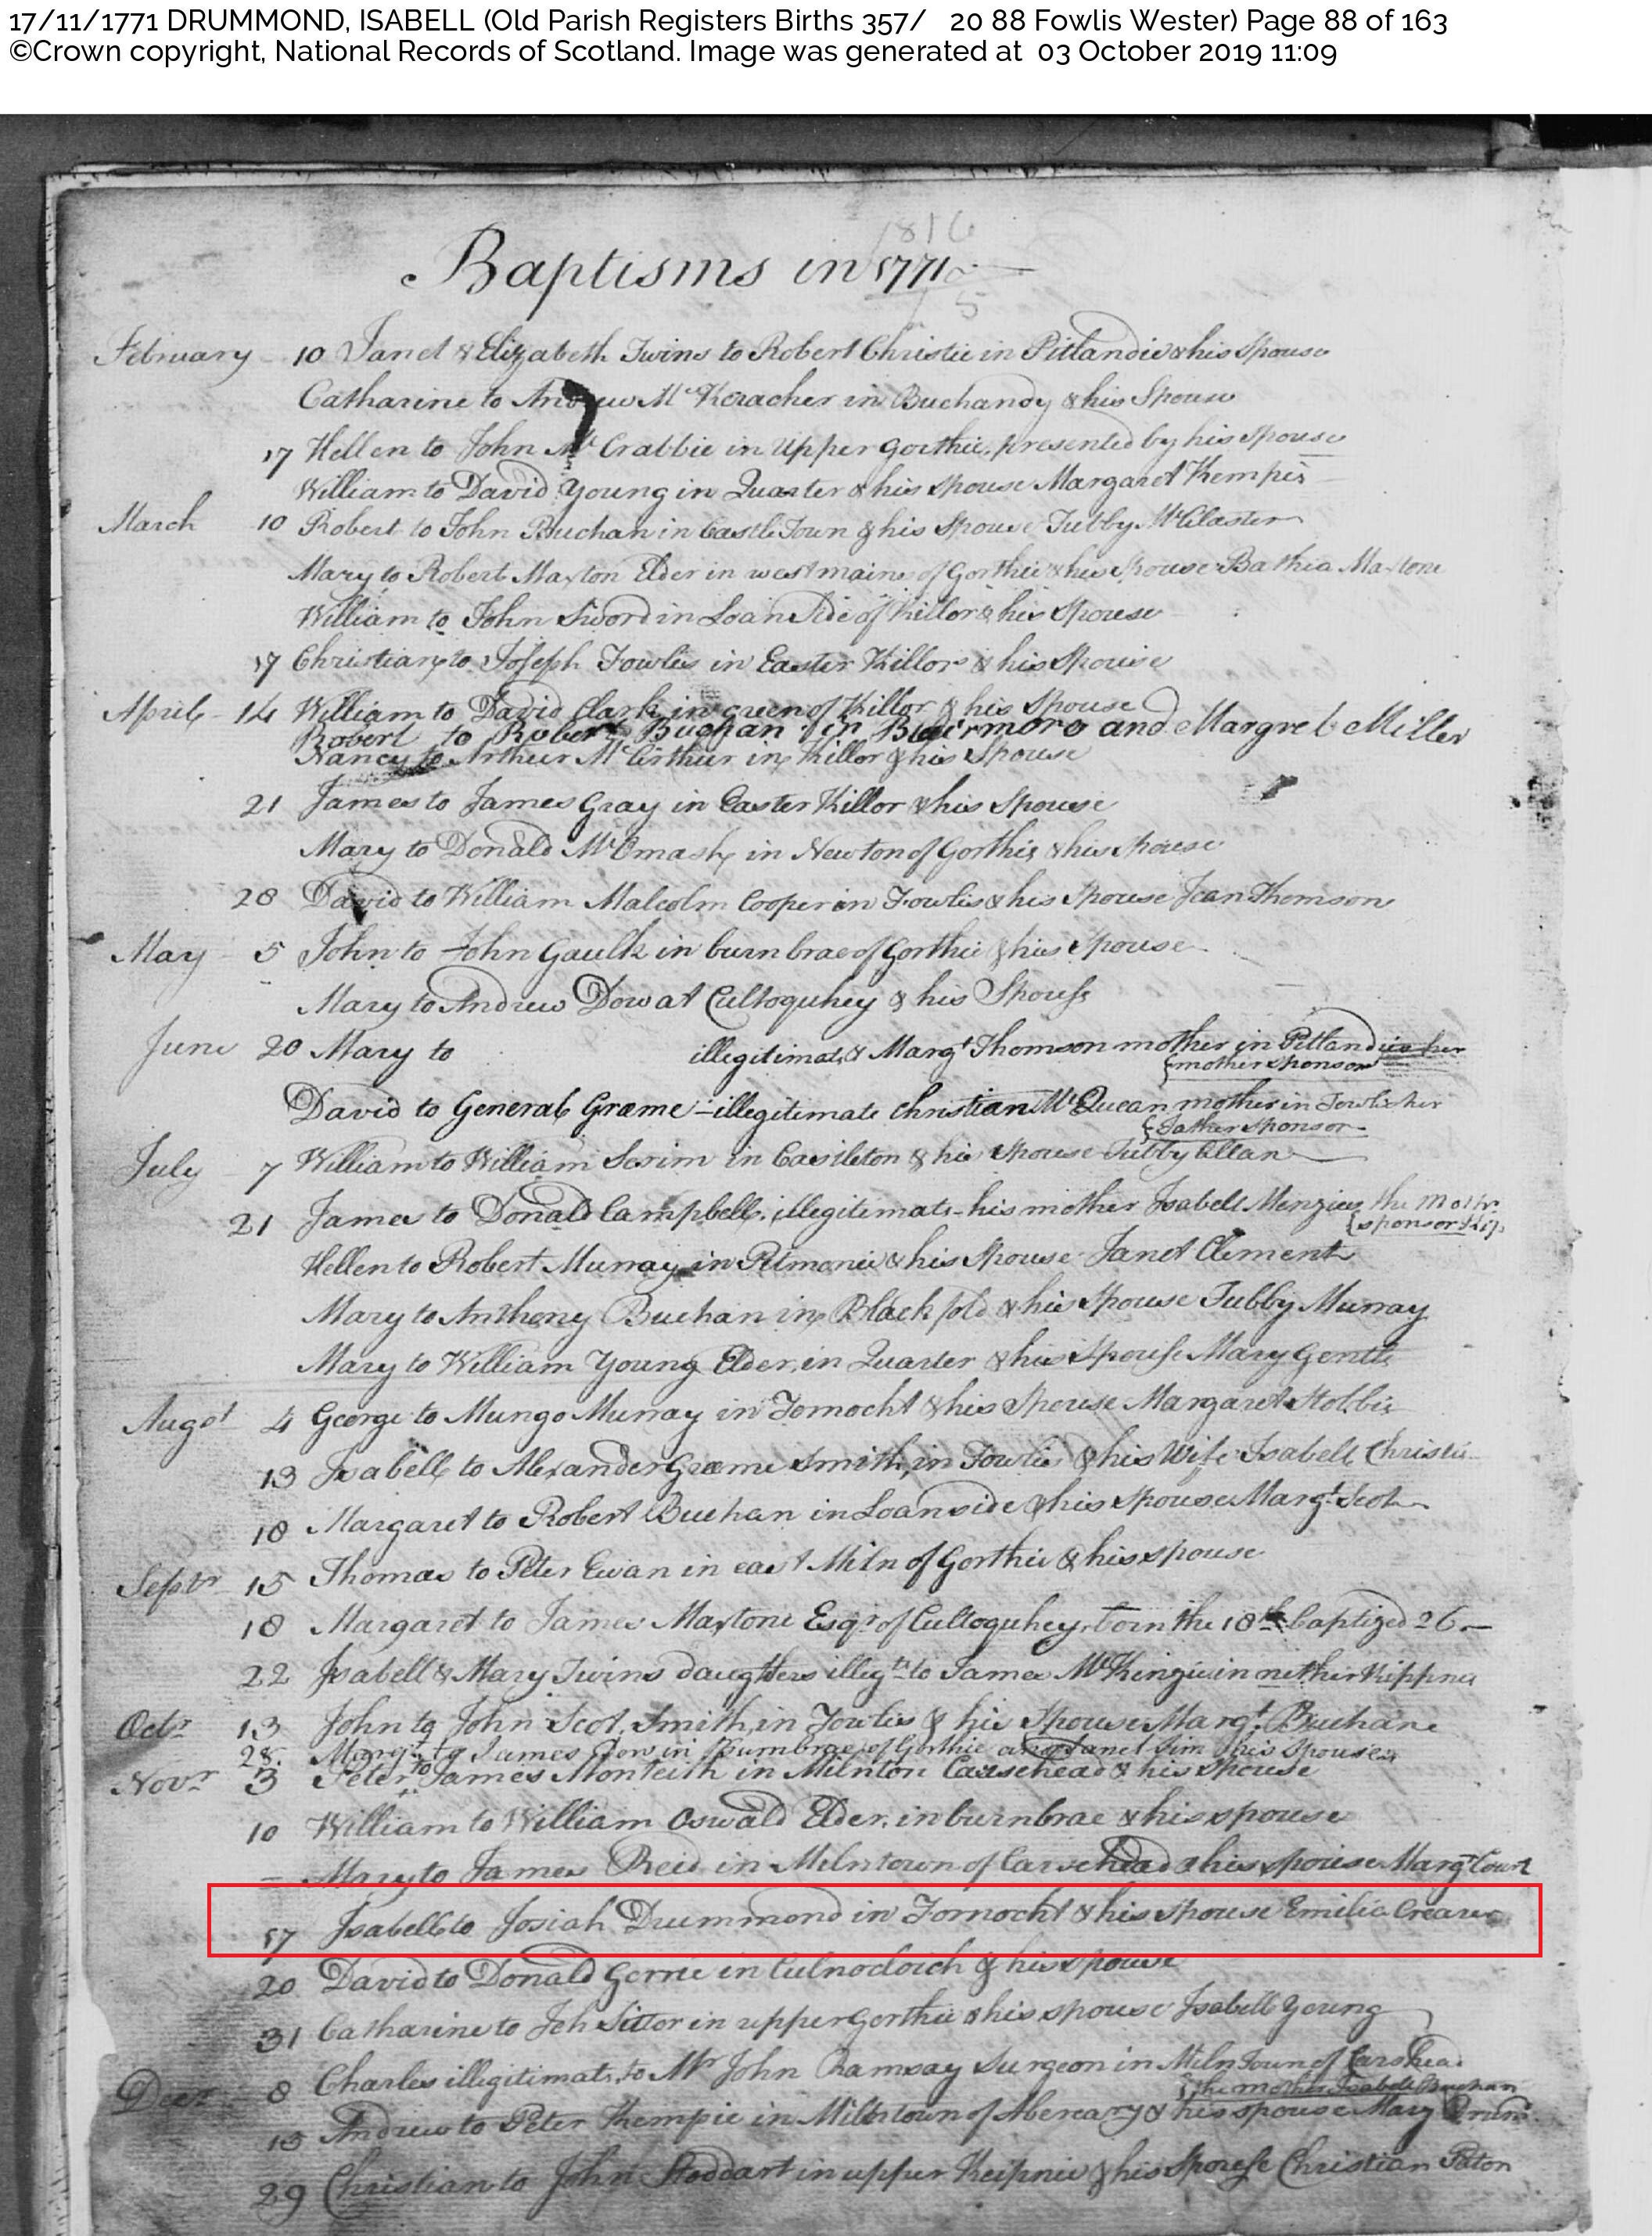 17/11/1771 DRUMMOND, ISABELL (Old Parish Registers Births 357/ 20 88 Fowlis Wester) Page 88 of 163
©Crown copyright, National Records of Scotland. Image was generated at 03 October 2019 11:09
1816
Baptisms in 1771
5
February 10 Janet & Elizabeth Twins to Robert Christie in Pitlandie & his Spouse
Catharine to Andrew McKeracher in Buchandy & his Spouse
17 Hellen to John McCrabbie in Upper Gorthie, presented by his Spouse
William to David Young in Quarter & his Spouse Margaret Kempie
March 10 Robert to John Buchan in Castle Town & his Spouse Tubby
Mary to Robert Maxton Elder in west mains of Gorthie & his Spouse Bathia Maxtone
William to John Sword in Loan Side of Killor & his Spouse
17 Christian to Joseph Fowlis in Easter Killor & his Spouse
April 14 William to David Clark in green of Killor & his Spouse
Robert to Robert Buchan in and Margret Miller
Nancy to Arthur McArthur in Killor & his Spouse
21 James to James Gray in Easter Killor & his Spouse
Mary to Donald McOmash in Newton of Gorthie & his Spouse
28 David to William Malcolm Cooper in Fowlis & his Spouse Jean Thomson
May 5 John to John Gaulk in burn brae of Gorthie & his Spouse
Mary to Andrew Dow at Cultoquhey & his Spouse
June 20 Mary to illegitimate & Margt Thomson mother in Pitlandie her
mother sponsor
David to General Græme - illegitimate Christian McQuean mother in Fowlis her
Father sponsor
July 7 William to William Scrim in Castleton & his Spouse Tubby Allan
21 James to Donald Campbell illegitimate - his mother Isabell Menzies the Mothr
sponsor
Hellen to Robert Murray in Pitmonie & his Spouse Janet Clement
Mary to Anthony Buchan in Black fold & his Spouse Tubby Murray
Mary to William Young Elder, in Quarter & his Spouse Mary Gentle
Augst 4 George to Mungo Murray in Fornocht & his Spouse Margaret Stobbie
13 Isabell to Alexander Græme Smith, in Fowlis & his Wife Isabell Christie
18 Margaret to Robert Buchan in Loanside & his spouse Margt Scot
Septr 15 Thomas to Peter Ewan in east Miln of Gorthie & his spouse
18 Margaret to James Maxtone Esqr of Cultoquhey, born the 18th baptized 26
22 Isabell & Mary Twins daughters illegte to James McKinzie in nether Kippnie
Octr 13 John to John Scot, Smith, in Fowlis & his Spouse Margt Buchan
28 Margt to James Dow in Burnbrae of Gorthie and Janet Sim his Spouse
Novr 3 Peter to James Monteith in Milnton Carsehead & his Spouse
10 William to William Oswald Elder, in burnbrae & his spouse
- Mary to James Reid in Milntown of Carsehead & his spouse Margt Court
17 Isabell to Josiah Drummond in Fornocht & his spouse Emilia Crearer
20 David to Donald Gorrie in Culnacloich & his spouse
31 Catharine to Joh Sittor in upper Gorthie & his spouse Isabell Young
Decr 8 Charles illegitimate to Mr John Ramsay Surgeon in Miln Town of Carshead
the mother Isabell Buchan
15 Andrew to Peter Kempie in Milntown of Abercarny & his spouse Mary Drumd
29 Christian to John Stoddart in upper Keipnie & his Spouse Christian Paton